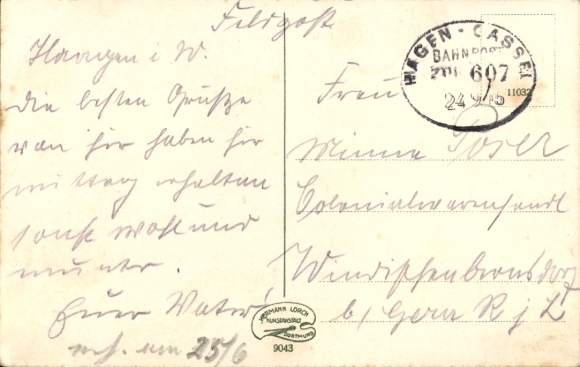 Feldpost
Haagen i W.
die besten Grüße
von hir haben hir
mittag erhalten
sonst wohl und
munter.
Euer Vater
erh. am 25/6
HAGEN - CASSEL
BAHNPOST
ZUG 607
24 15
11032
Frau
Minna Poser
Colonialwarenhandl
Windischenbernsdorf
b/ Gera R j L
HERMANN LORCH
KUNSTANSTALT
DORTMUND
9043